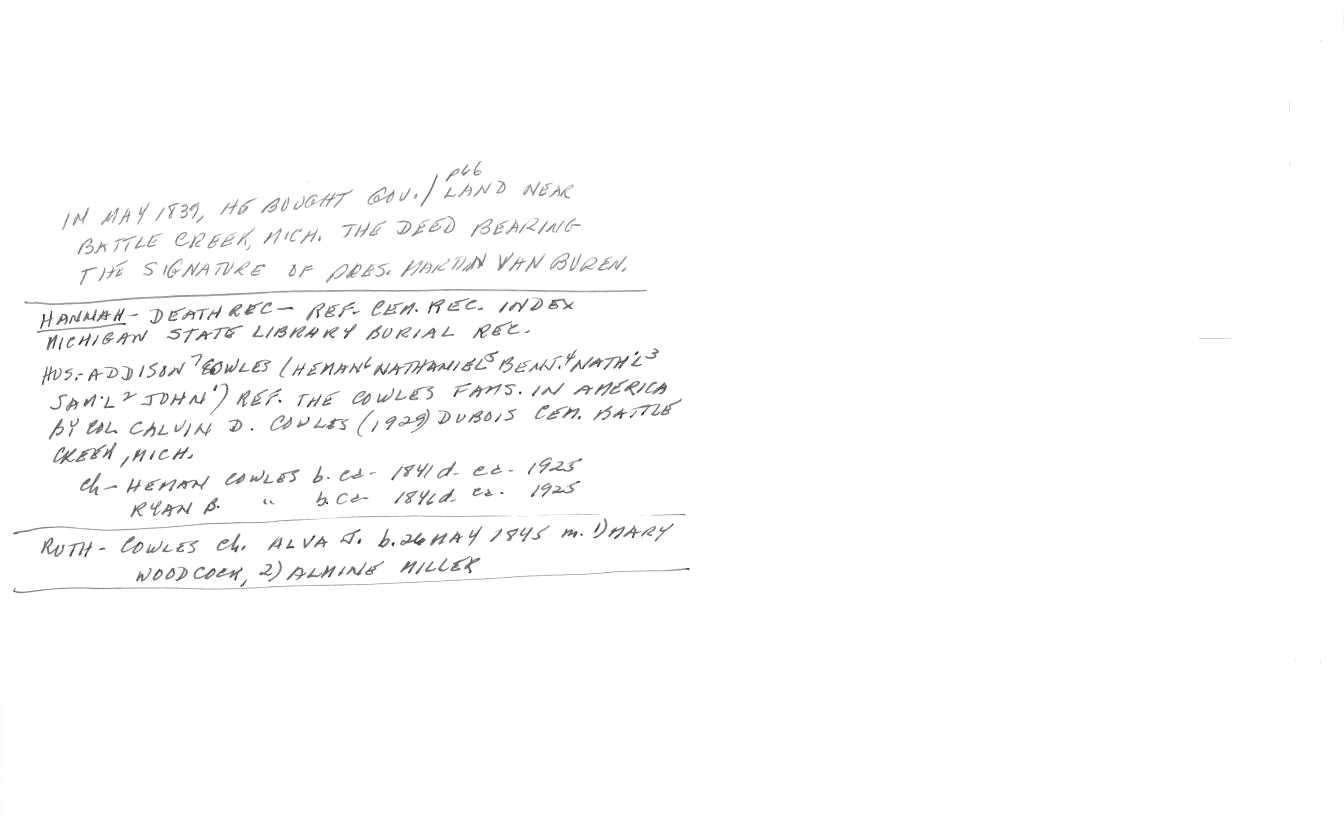 p66
IN MAY 1839, HE BOUGHT GOV./LAND NEAR
BATTLE CREEK, MICH. THE DEED BEARING
THE SIGNATURE OF PRES. MARTIN VAN BUREN.
HANNAH - DEATH REC - REF. CEM. REC. INDEX
MICHIGAN STATE LIBRARY BURIAL REC.
HUS. - ADDISON⁷ COWLES (HEMAN⁶ NATHANIEL⁵ BENJ.⁴ NATH'L³
SAM'L² JOHN¹) REF. THE COWLES FAMS. IN AMERICA
BY COL. CALVIN D. COWLES (1929) DUBOIS CEM. BATTLE
CREEK, MICH.
Ch - HEMAN COWLES b. ca - 1841 d. ca - 1925
RYAN B. " b. Ca - 1846 d. ca. 1925
RUTH - COWLES Ch. ALVA J. b. 26 MAY 1845 m. 1) MARY
WOODCOCK, 2) ALMINE MILLER